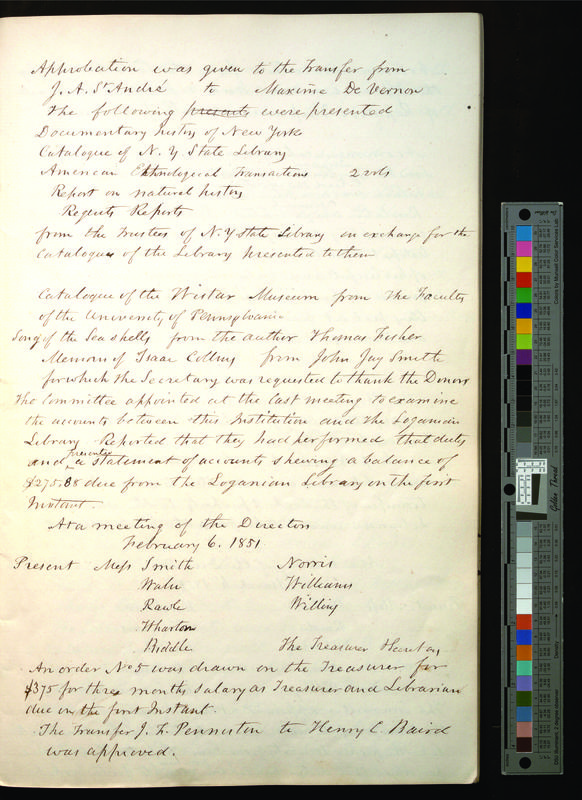 Approbation was given to the Transfer from
J. A. St André to Maxime De Vernon
The following presents were presented
Documentary history of New York
Catalogue of N. Y. State Library
American Ethnological Transactions 2 vols
Report on natural history
Regents Reports
from the Trustees of N. Y State Library in exchange for the
Catalogues of the Library presented to them
Catalogue of the Wistar Museum from the Faculty
of the University of Pennsylvania
Song of the Sea shells from the author Thomas Fisher
Memoir of Isaac Collins from John Jay Smith
for which the Secretary was requested to thank the Donors
The Committee appointed at the last meeting to examine
the accounts between this Institution and the Loganian
Library Reported that they had performed that duty
and presented a statement of accounts shewing a balance of
$275.38 due from the Loganian Library on the first
Instant.
At a meeting of the Directors
February 6. 1851
Present Mess Smith Norris
Waln Williams
Rawle Willing
Wharton
Biddle The Treasurer Secretary
An order No 5 was drawn on the Treasurer for
$375 for three months salary as Treasurer and Librarian
due on the first Instant.
The Transfer J. F. Penniston to Henry C. Baird
was approved.
Golden Thread